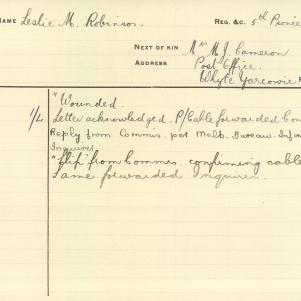 NAME Leslie M. Robinson.
REG. &C. 5th Pionee
NEXT OF KIN Mrs M. J. Cameron
ADDRESS Post Office.
Whyte Yarcowie
"Wounded.
1/L Letter acknowledged. P/Cable forwarded Com
Reply from Commis. per Melb. Bureau. Infor
Inquirer
"Slip from Commes. confirming cable
Same forwarded Inquirer.